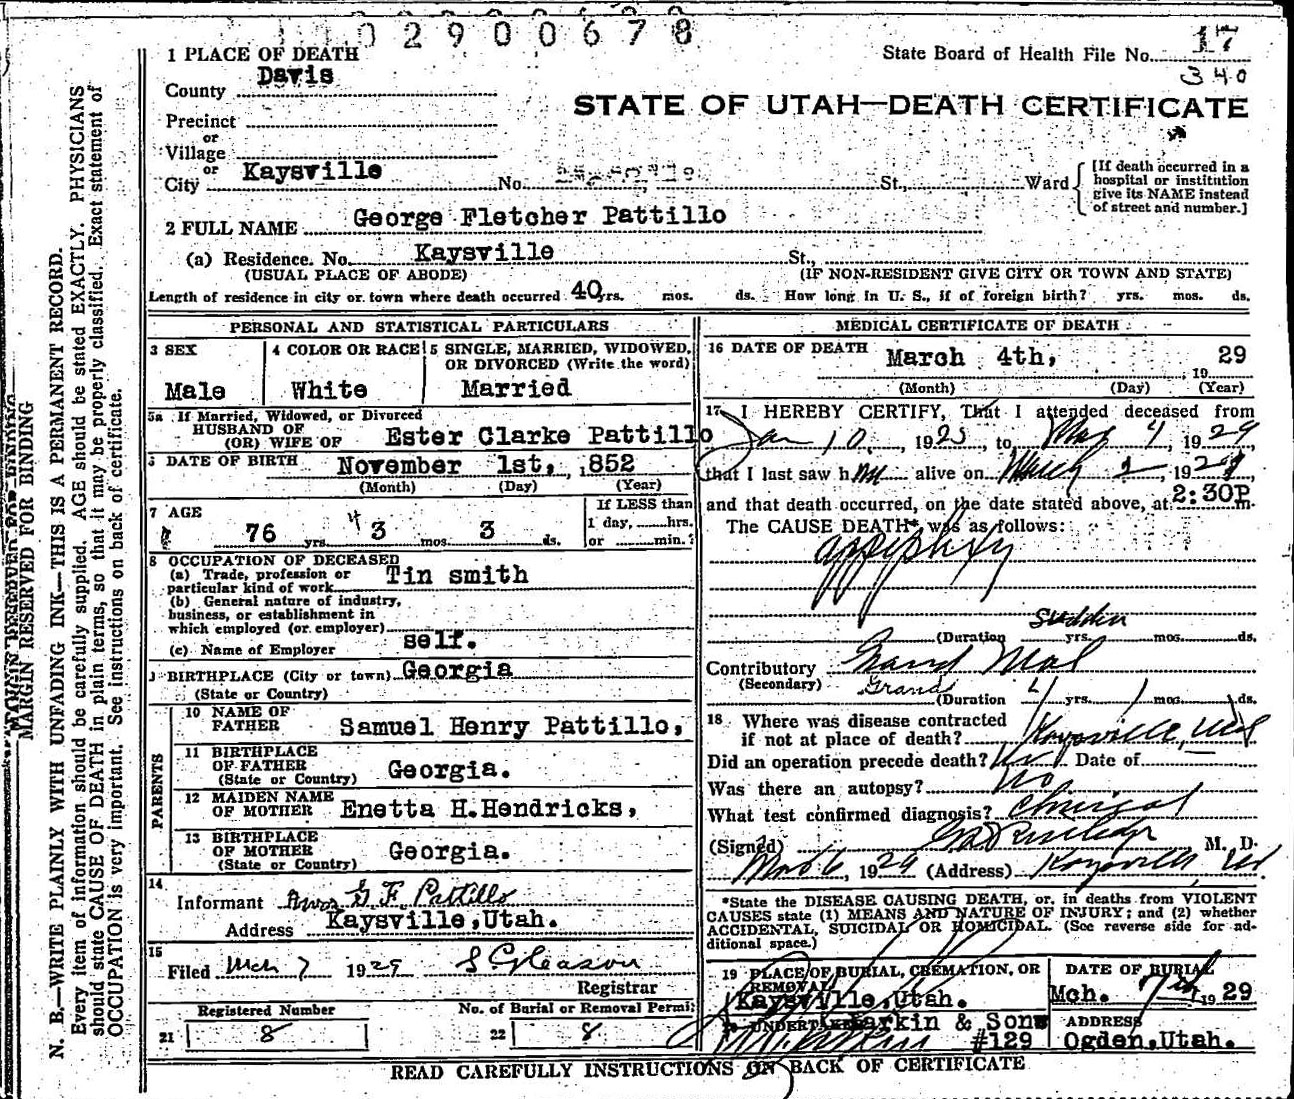 0 2 9 0 0 6 7 8
1 PLACE OF DEATH
State Board of Health File No. 17
340
County Davis
STATE OF UTAH—DEATH CERTIFICATE
Precinct
or
Village
or
City Kaysville No. St., Ward
[If death occurred in a hospital or institution give its NAME instead of street and number.]
2 FULL NAME George Fletcher Pattillo
(a) Residence. No. Kaysville St.,
(USUAL PLACE OF ABODE) (IF NON-RESIDENT GIVE CITY OR TOWN AND STATE)
Length of residence in city or town where death occurred 40 yrs. mos. ds. How long in U. S., if of foreign birth? yrs. mos. ds.
PERSONAL AND STATISTICAL PARTICULARS
3 SEX
Male
4 COLOR OR RACE
White
5 SINGLE, MARRIED, WIDOWED,
OR DIVORCED (Write the word)
Married
5a If Married, Widowed, or Divorced
HUSBAND OF
(OR) WIFE OF Ester Clarke Pattillo
6 DATE OF BIRTH November 1st, 1852
(Month) (Day) (Year)
7 AGE
76 yrs. 4 3 mos. 3 ds.
If LESS than
1 day, hrs.
or min.?
8 OCCUPATION OF DECEASED
(a) Trade, profession or
particular kind of work Tin smith
(b) General nature of industry,
business, or establishment in
which employed (or employer)
(c) Name of Employer self.
9 BIRTHPLACE (City or town) Georgia
(State or Country)
PARENTS
10 NAME OF
FATHER Samuel Henry Pattillo,
11 BIRTHPLACE
OF FATHER
(State or Country) Georgia.
12 MAIDEN NAME
OF MOTHER Enetta H.Hendricks,
13 BIRTHPLACE
OF MOTHER
(State or Country) Georgia.
14
Informant G. F. Pattillo
Address Kaysville,Utah.
15
Filed Mch 7 1929 S Gleason
Registrar
Registered Number
21 8
No. of Burial or Removal Permit
22 8
MEDICAL CERTIFICATE OF DEATH
16 DATE OF DEATH March 4th, 1929
(Month) (Day) (Year)
17 I HEREBY CERTIFY, That I attended deceased from
Jan 10, 1925, to Mar 4 1929
that I last saw him alive on March 2, 1929,
and that death occurred, on the date stated above, at 2:30P m.
The CAUSE DEATH* was as follows:
appoplexy
sudden
(Duration yrs. mos. ds.
Contributory Grand Mal
(Secondary) Grand
(Duration 4 yrs. 1 mos. 1 ds.
18 Where was disease contracted
if not at place of death? Kaysville, Utah
Did an operation precede death? No Date of
Was there an autopsy? No
What test confirmed diagnosis? Clinical
(Signed) Rutledge M. D.
Mar 6, 1929 (Address) Kaysville Ut.
*State the DISEASE CAUSING DEATH, or, in deaths from VIOLENT
CAUSES state (1) MEANS AND NATURE OF INJURY; and (2) whether
ACCIDENTAL, SUICIDAL OR HOMICIDAL. (See reverse side for ad-
ditional space.)
19 PLACE OF BURIAL, CREMATION, OR
REMOVAL
Kaysville,Utah.
DATE OF BURIAL
Mch. 7th 1929
20 UNDERTAKER Larkin & Sons
#129
ADDRESS
Ogden,Utah.
READ CAREFULLY INSTRUCTIONS ON BACK OF CERTIFICATE
MARGIN RESERVED FOR BINDING
N. B.—WRITE PLAINLY WITH UNFADING INK—THIS IS A PERMANENT RECORD.
Every item of information should be carefully supplied. AGE should be stated EXACTLY. PHYSICIANS
should state CAUSE OF DEATH in plain terms, so that it may be properly classified. Exact statement of
OCCUPATION is very important. See instructions on back of certificate.